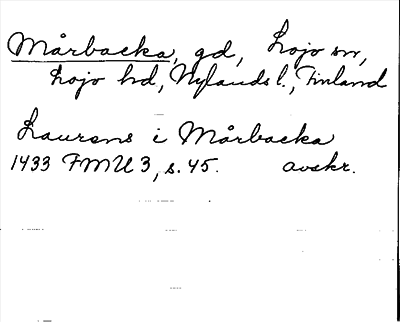 Mårbacka, gd, Lojo sn,
Lojo hd, Nylands l., Finland
Laurens i Mårbacka
1433 FMU 3, s. 45. avskr.